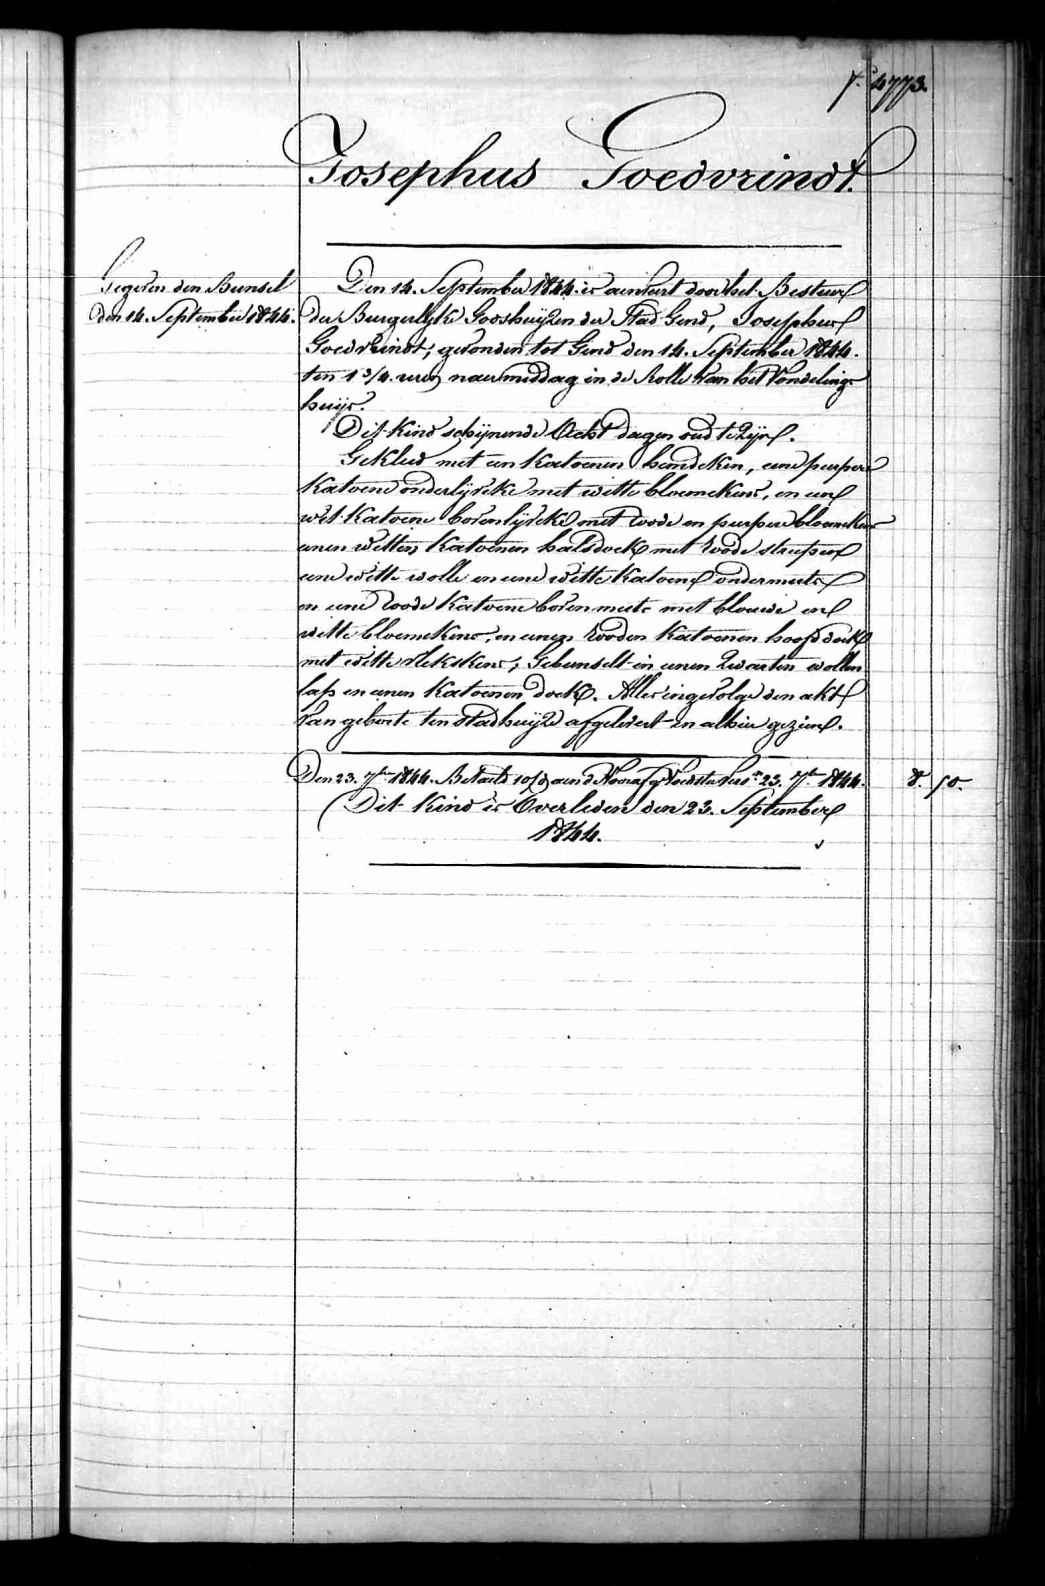 f.° 4773.
Josephus Goedvrindt.
Gegeven den Bunsel
den 14. September 1844.
Den 14. September 1844. is aenveert door het Bestuer
der Burgerlyke Godshuijzen der Stad Gend, Josephus
Goedvrindt, gevonden tot Gend den 14. September 1844.
ten 1 3/4 uren naermiddag in de Rolle van het Vondelings
huijs.
Dit Kind schijnende Acht dagen oud te zijn.
Gekleed met een Katoenen hemdeken, eene purpere
Katoene onderlyveke met witte bloemekens, en een
wit Katoene bovenlyveke met roode en purpere bloemekens
eenen witten Katoenen halsdoek met roode streepen
eene witte wolle en eene witte Katoene ondermuts
en eene roode Katoene bovenmuts met blauwe en
witte bloemekens, en eenen rooden Katoenen hoofddoek
met witte vlekskens, Gebunselt in eenen zwarten wollen
lap en eenen Katoenen doek. Alles ingevolge den akt
van geboorte ten stadhuijze afgelevert en alhier gezien.
Den 23. 7.b 1844. Betaeld aen de Voedster 23. 7.b 1844.
8. 50.
Dit Kind is Overleden den 23. September
1844.